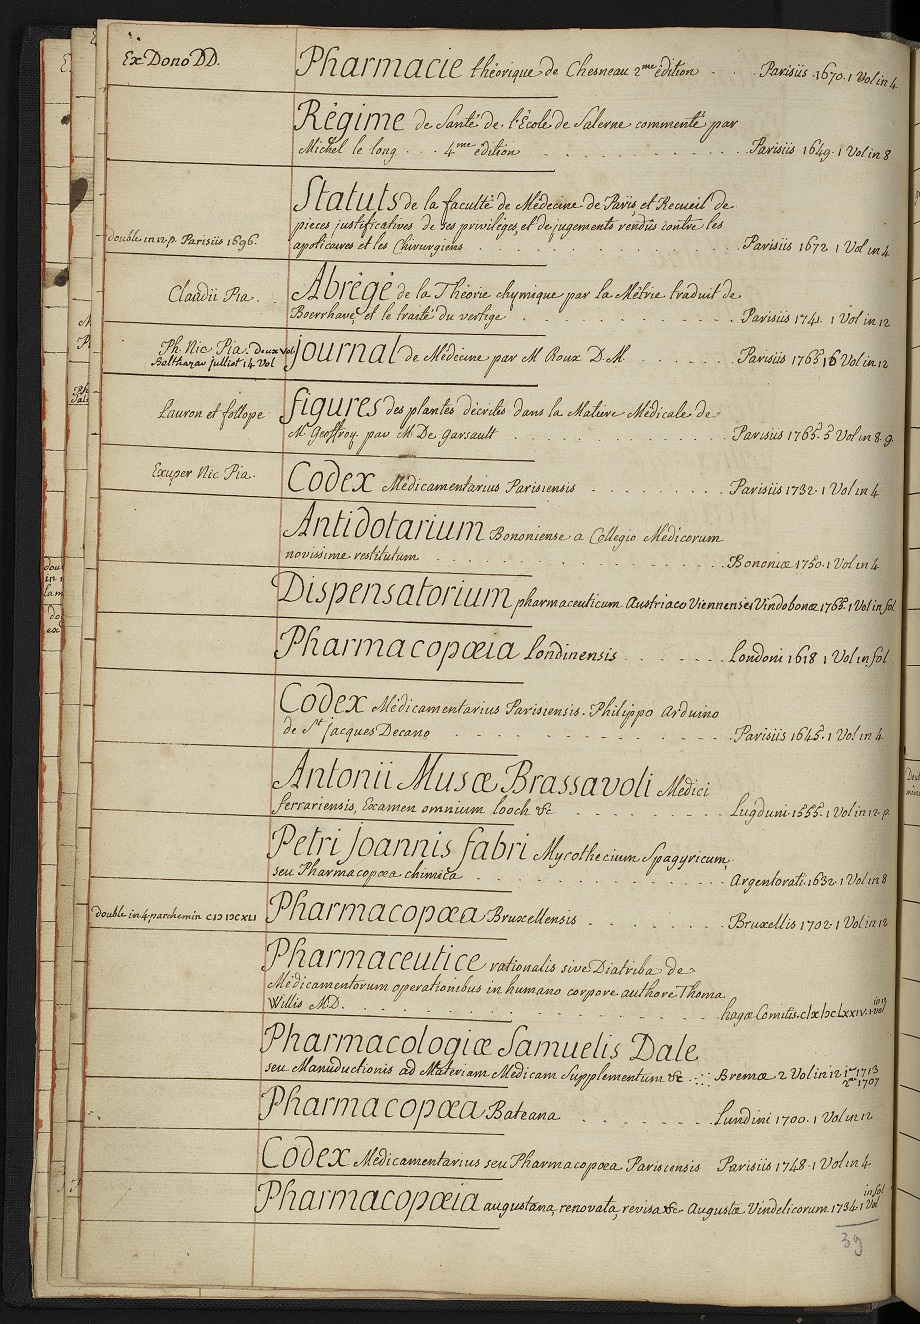 Ex Dono DD.
Pharmacie théorique de Chesneau 2me édition . . . Parisiis . 1670 . 1 Vol in 4
Régime de Santé de l'École de Salerne commenté par
Michel le long . . . 4me édition . . . Parisiis 1649 . 1 Vol in 8
Statuts de la faculté de Médecine de Paris et Recueil de
pieces justificatives de ses priviléges, et de jugements rendûs contre les
double in 12 p. Parisiis 1696.
apoticaires et les Chirurgiens . . . Parisiis 1672 1 Vol in 4
Claudii Pia.
Abrégé de la Théorie chymique par la Métrie traduit de
Boerrhave, et le traité du vertige . . . Parisiis 1741. 1 Vol in 12
Ph. Nic Pia. Deux Vol
Balthazar julliot 14 Vol
journal de Médecine par M Roux D. M. . . . Parisiis 1765 16 Vol in 12
Lauron et follope
figures des plantes décrites dans la Matiere Médicale de
Mr Geoffroy. par Mr De Garsault . . . Parisiis 1765. 5 Vol in 8. g.
Exuper Nic Pia.
Codex Médicamentarius Parisiensis . . . Parisiis 1732. 1 Vol in 4
Antidotarium Bononiense a Collegio Médicorum
novissime restitutum . . . Bononiæ 1750. 1 Vol in 4
Dispensatorium pharmaceuticum Austriaco Viennense Vindobonæ 1765. 1 Vol in fol
Pharmacopœia Londinensis . . . Londoni 1618 1 Vol in fol
Codex Médicamentarius Parisiensis. Philippo Arduino
de St jacques Decano . . . Parisiis 1645. 1 Vol in 4
Antonii Musæ Brassavoli Medici
ferrariensis, Examen omnium looch &c . . . Lugduni. 1555. 1 Vol in 12. p.
Petri Joannis fabri Myrothecium Spagyricum,
seu Pharmacopœa chimica . . . Argentorati. 1632. 1 Vol in 8
double in 4 parchemin CIƆ IƆCXLI
Pharmacopœa Bruxellensis . . . Bruxellis 1702. 1 Vol in 12
Pharmaceutice rationalis sive Diatriba de
Médicamentorum operationibus in humano corpore authore Thoma
Willis M.D. . . . hagæ Comitis. c|x|ɔcLxxiv. 1 Vol in 12
Pharmacologiæ Samuelis Dale
seu Manuductionis ad Materiam Medicam Supplementum &c . . . Bremæ 2 Vol in 12 1us 1713
2us 1707
Pharmacopœa Bateana . . . Lundini 1700. 1 Vol in 12
Codex Médicamentarius seu Pharmacopœa Parisiensis Parisiis 1748. 1 Vol in 4
Pharmacopœia augustana, renovata, revisa &c Augustæ Vindelicorum 1734. 1 Vol in fol
39